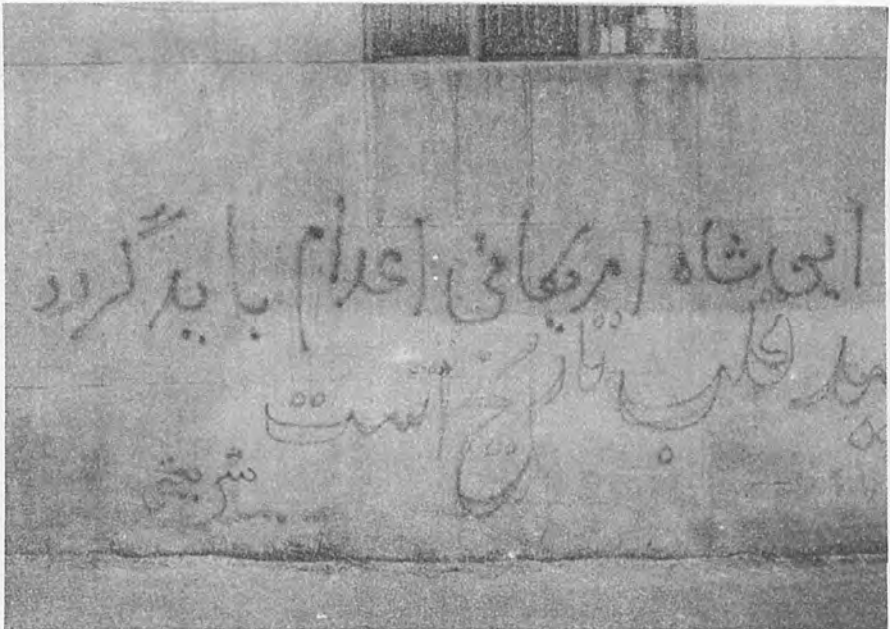 این شاه امریکائی اعدام باید گردد
شهید قلب تاریخ است
شریعتی